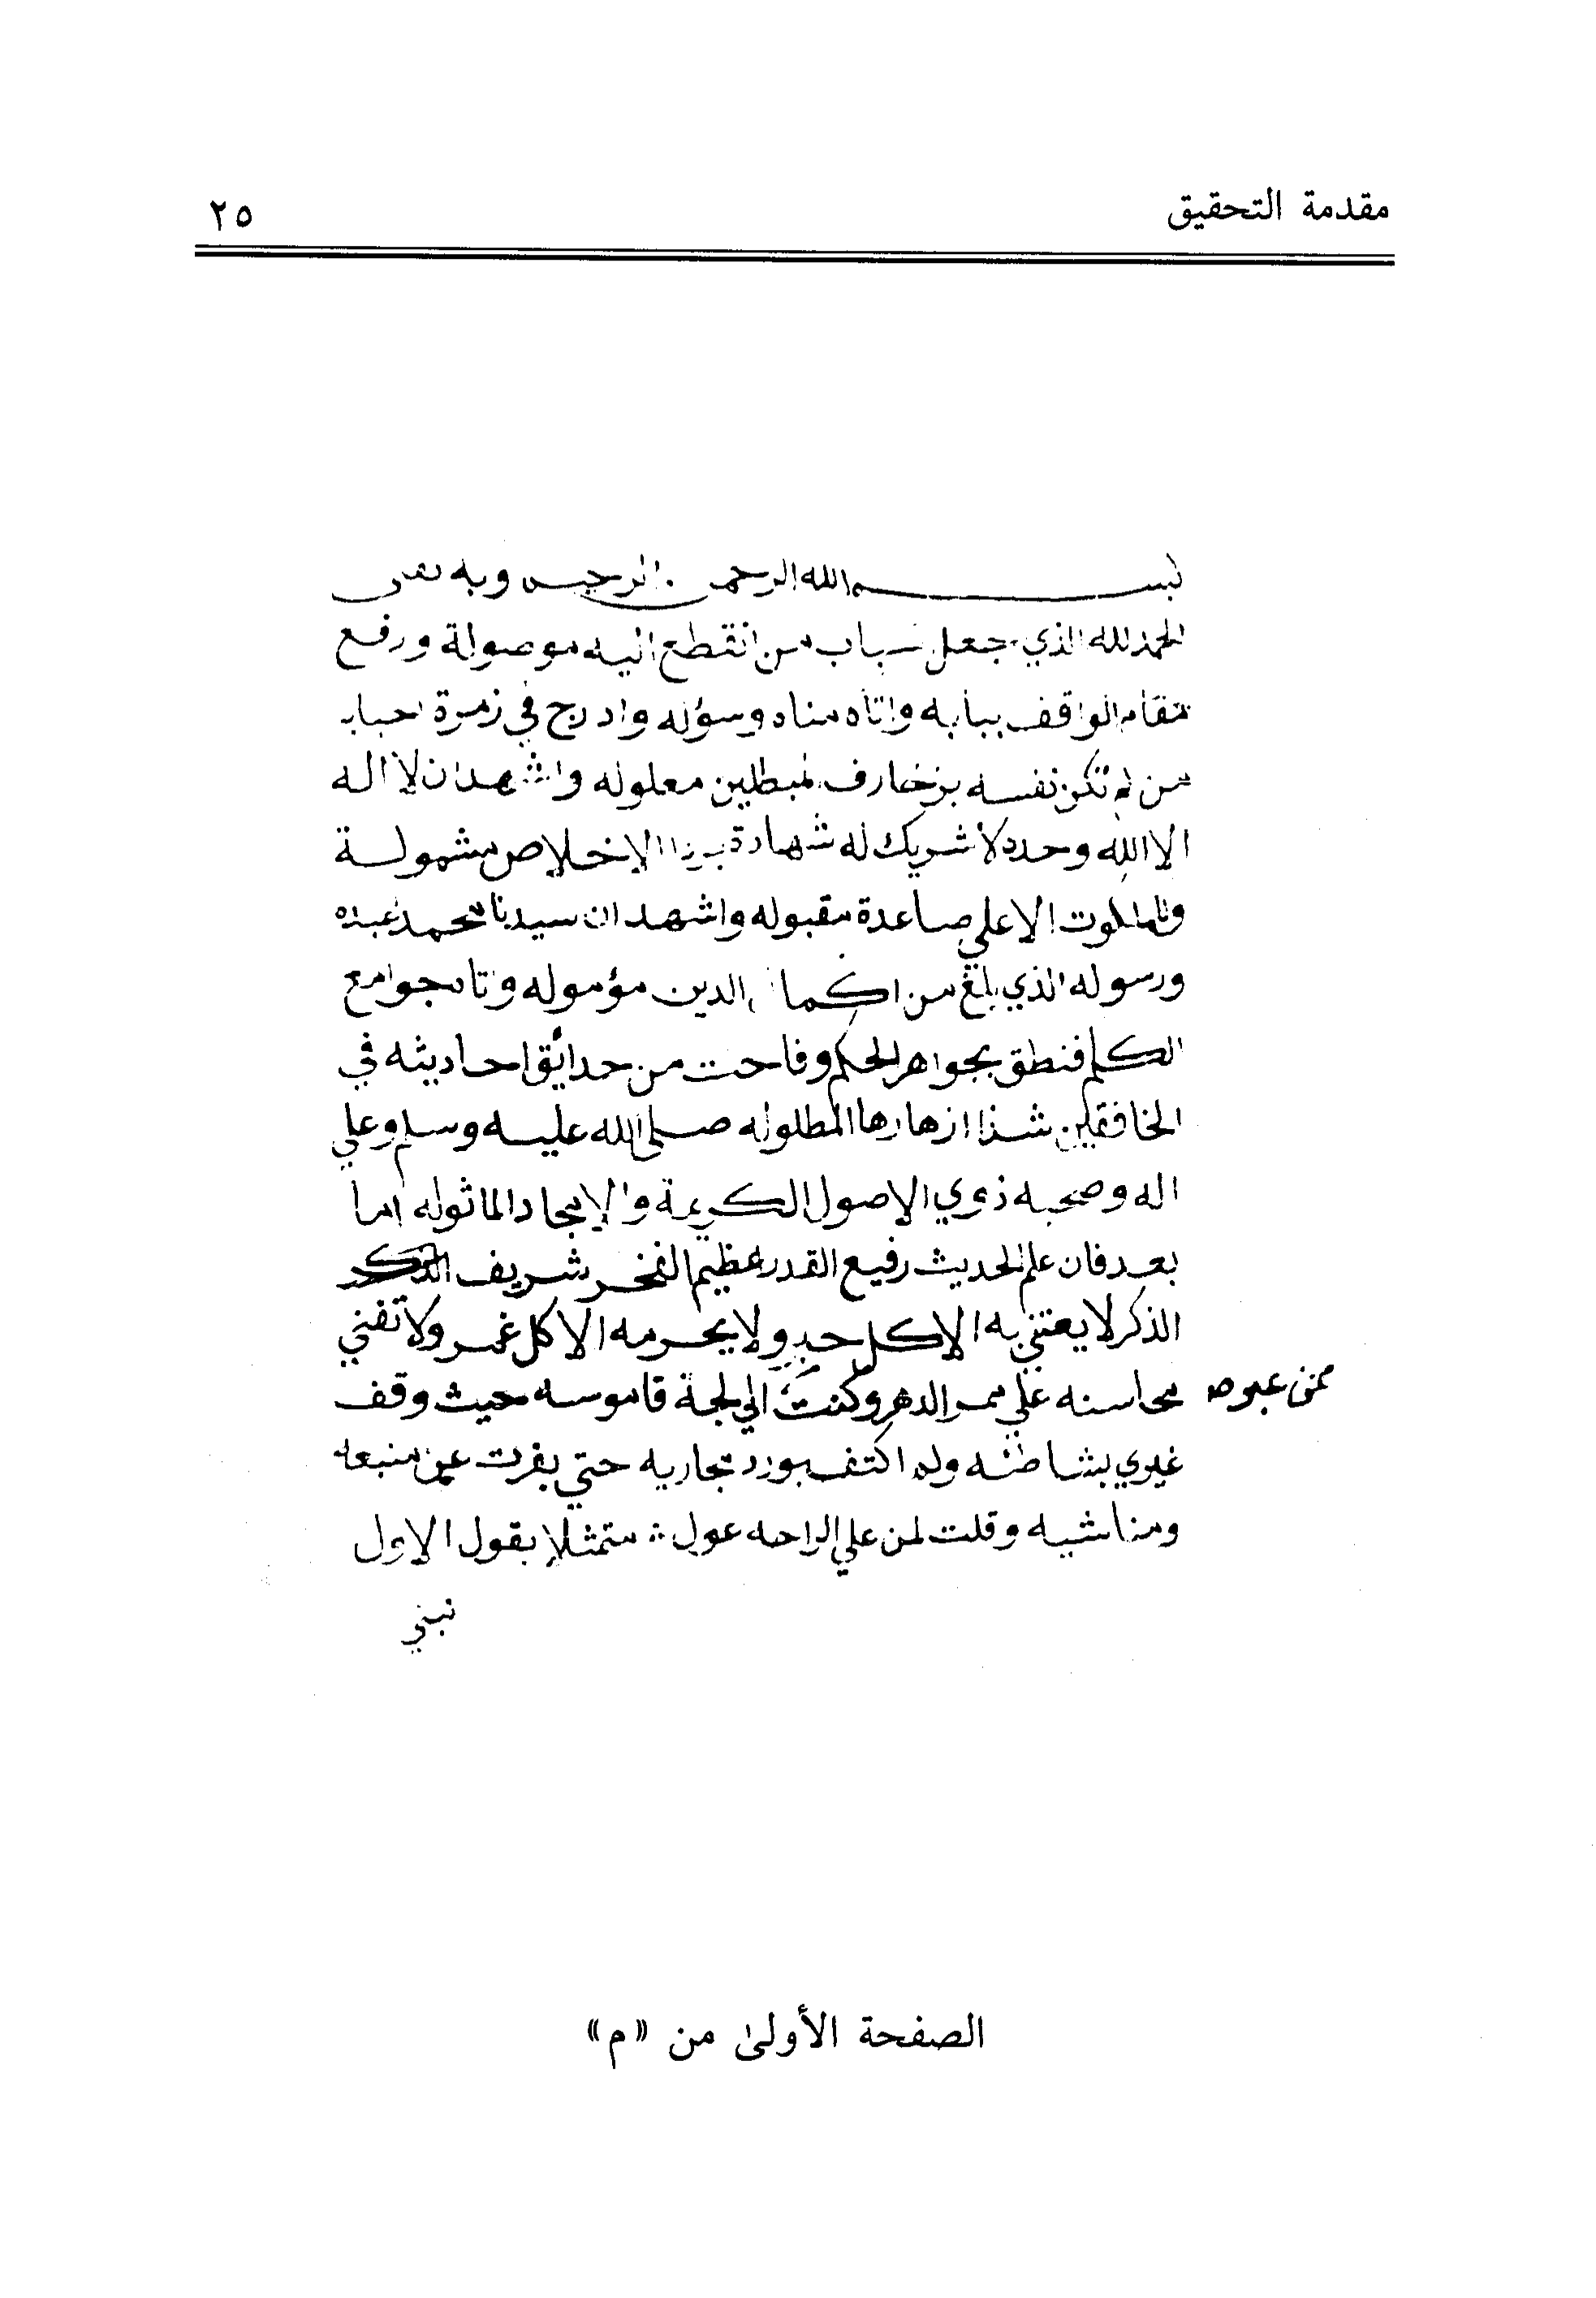 مقدمة التحقيق
٢٥
بسم الله الرحمن الرحيم وبه ثقتي
الحمد لله الذي جعل اسباب من انقطع اليه موصولة ورفع
مقام الواقف ببابه واتاه مناه وسؤله وادرج في زمرة احبابه
من لم تكن نفسه بزخارف المبطلين معلوله واشهد ان لا اله
الا الله وحده لا شريك له شهادة الاخلاص مشمولة
الاعلي صاعدة مقبوله واشهد ان سيدنا محمد عبده
ورسوله الذي بلغ من اكمال الدين مؤموله واتاه جوامع
الكلم فنطق بجواهر الحكم وفاحت من حدائق احاديثه في
الخافقين شذا ازهارها المطلوله صلى الله عليه وسلم وعلي
اله وصحبه ذوي الاصول الكريمة والامجاد الماثوله اما
بعد فان علم الحديث رفيع القدر عظيم الفخر شريف
الذكر لا يعتني به الا كل حبر ولا يحرمه الا كل غمر ولا تفني
محاسنه علي ممر الدهر وكنت الي لجة قاموسه حيث وقف
ممن عبر
غيري بشاطئه ولم اكتف بورد مجاريه حتي بقرت عن منبعه
ومناشيه وقلت لمن علي الراحه عول متمثلا بقول الاول
نبني
الصفحة الأولىٰ من «م»